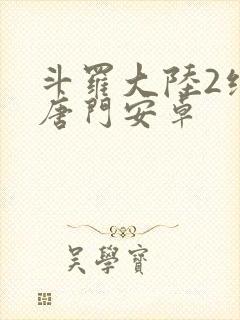 斗羅大陸2绝
唐門安卓
吳學寶